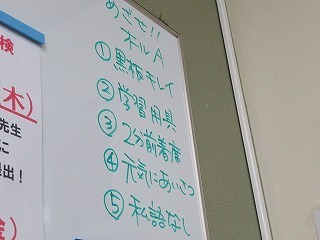 めざせ!!
オールA
①黒板キレイ
②学習用具
③2分前着席
④元気にあいさつ
⑤私語なし
検
(木)
先生
に
提出!